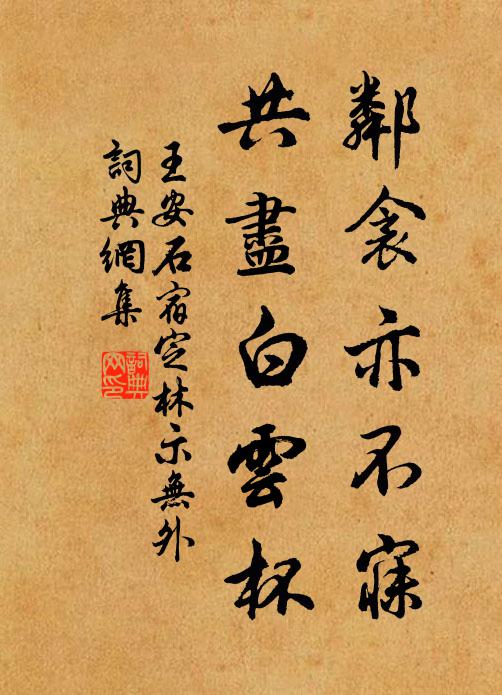 鄰衾亦不寐
共盡白雲杯
王安石宿定林示無外
詞典網集
詞典網印